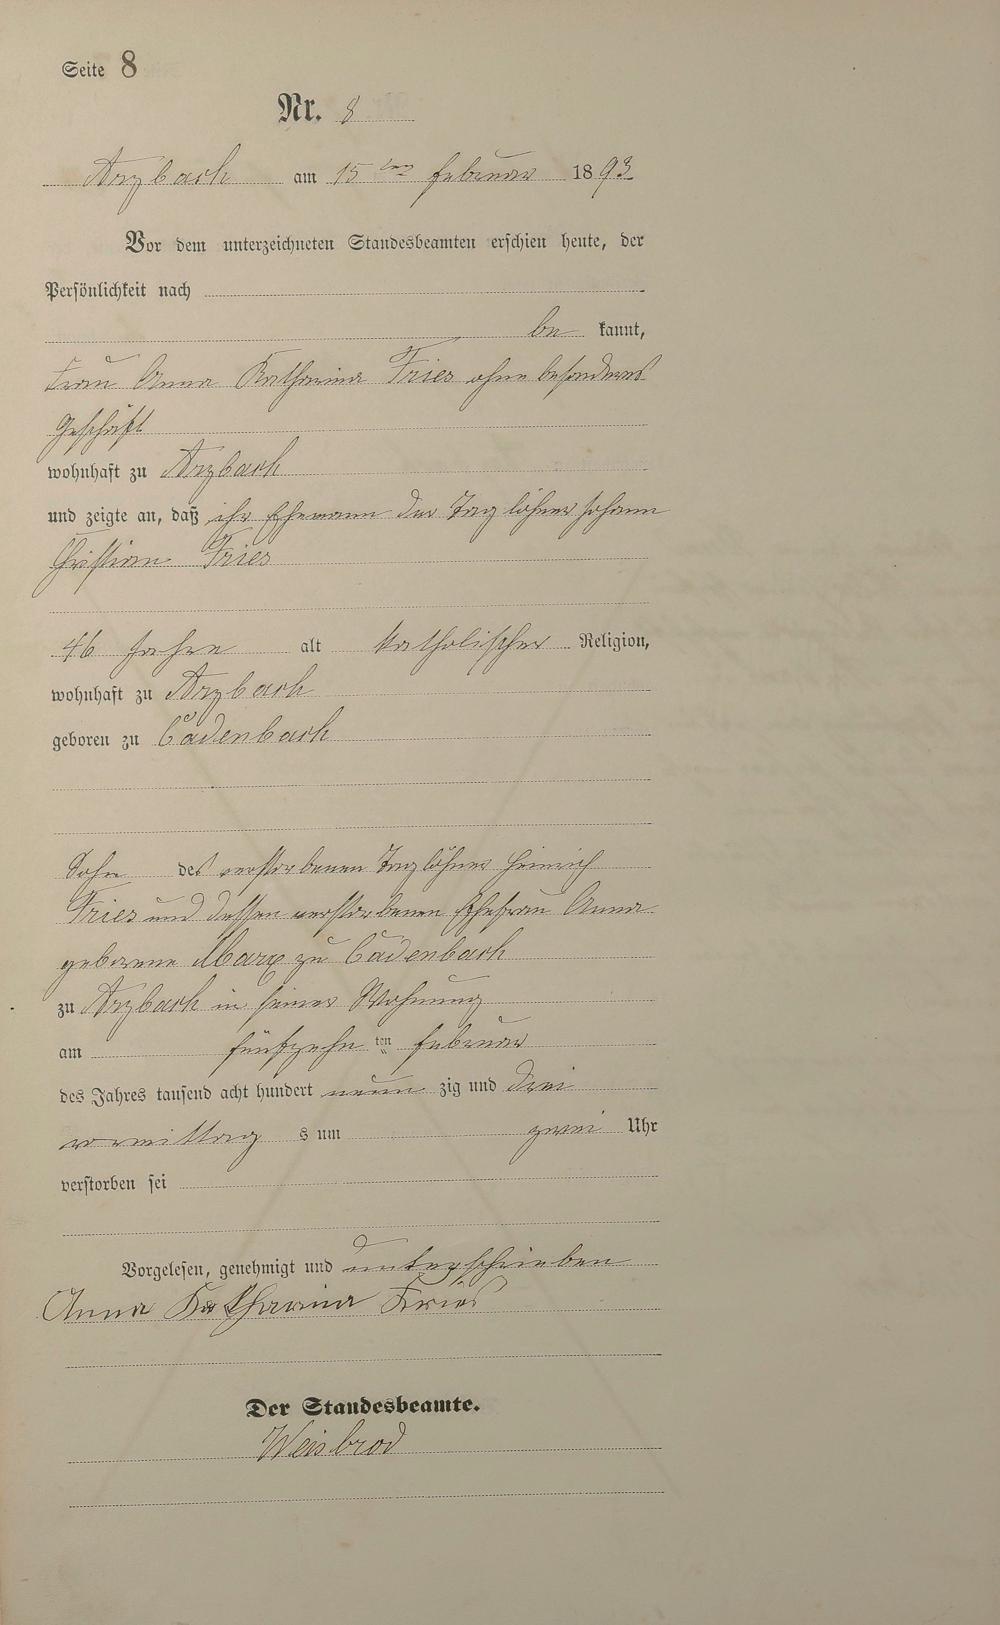 Seite 8
Nr. 8
Arzbach am 15ten Februar 1893
Vor dem unterzeichneten Standesbeamten erschien heute, der
Persönlichkeit nach
be kannt,
Frau Anna Katharina Fries ohne besonderes
Geschäft
wohnhaft zu Arzbach
und zeigte an, daß ihr Ehemann der Taglöhner Johann
Christian Fries
46 Jahre alt katholischer Religion,
wohnhaft zu Arzbach
geboren zu Cadenbach
Sohn des verstorbenen Taglöhner Heinrich
Fries und dessen verstorbenen Ehefrau Anna
geborene Marx zu Cadenbach
zu Arzbach in seiner Wohnung
am fünfzehnten Februar
des Jahres tausend acht hundert neun zig und drei
vormittag s um zwei Uhr
verstorben sei
Vorgelesen, genehmigt und unterschrieben
Anna Katharina Fries
Der Standesbeamte.
Weisbrod